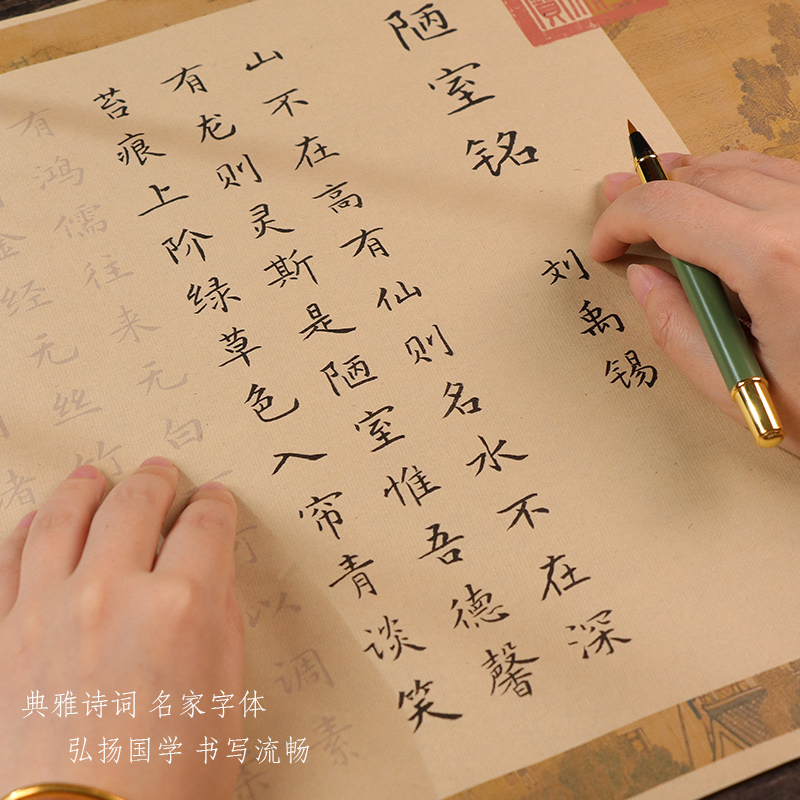 陋室铭
刘禹锡
山不在高有仙则名水不在深
有龙则灵斯是陋室惟吾德馨
苔痕上阶绿草色入帘青谈笑
有鸿儒往来无白可以调素
金经无丝竹
诸
典雅诗词 名家字体
弘扬国学 书写流畅